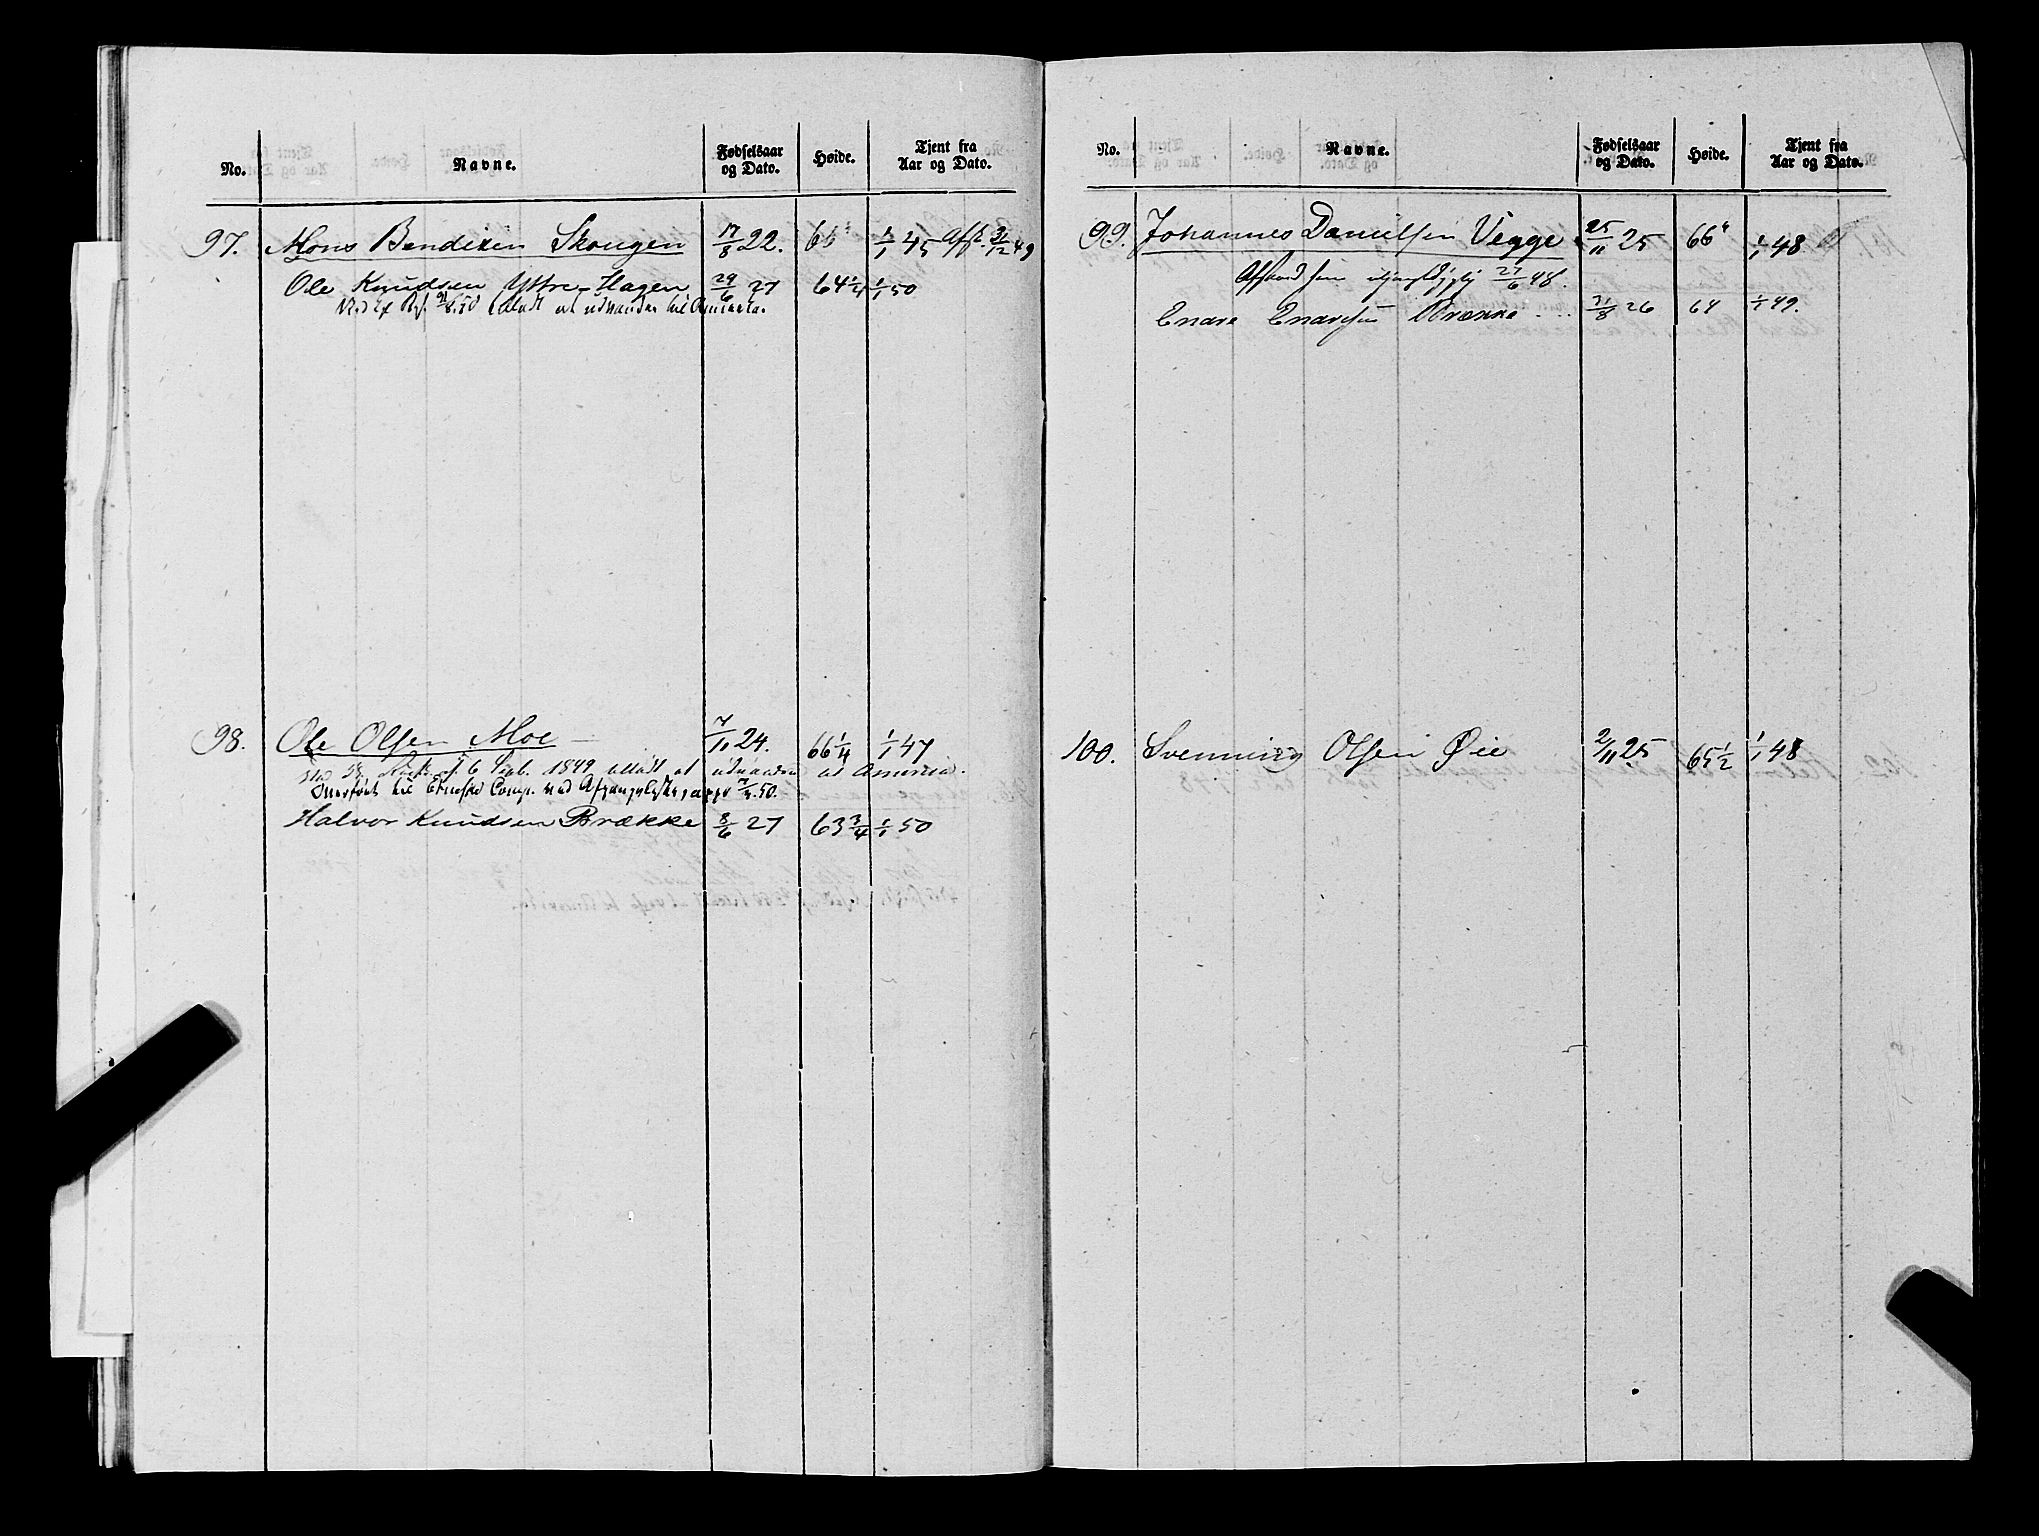 No. Navne. Fødselsaar og Dato. Høide. Tjent fra Aar og Dato.
97. Mons Bendixen Skougen 17/8 22. 66" 1/1 45 Afsk. 31/12 49
Ole Knudsen Yttre-Hagen 29/6 27 64 1/4 1/1 50
Ved 50 tilladt at udvandre til Amerika.
98. Ole Olsen Moe 7/11 24. 66 1/4 1/1 47
6 Sept. 1849 tilladt at udvandre at Amerika.
Overført til Comp. med 50.
Halvor Knudsen Brække 8/6 27 63 3/4 1/1 50
No. Navne. Fødselsaar og Dato. Høide. Tjent fra Aar og Dato.
99. Johannes Danielsen Vegge 25/11 25 66" 1/1 48
Afskeed som utjenstdygtig 27/6 48.
Enare Enaresen Brække 31/8 26 64 1/1 49.
100. Svenning Olsen Øie 2/11 25 65 1/2 1/1 48